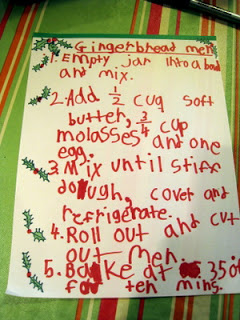 Gingerbread men
1. Empty jar into a bowl
and mix.
2. Add 1/2 cup soft
butter, 3/4 cup
molasses and one
egg.
3. Mix until stiff
dough, cover and
refrigerate.
4. Roll out and cut
out men.
5. Bake at 350
for ten mins.